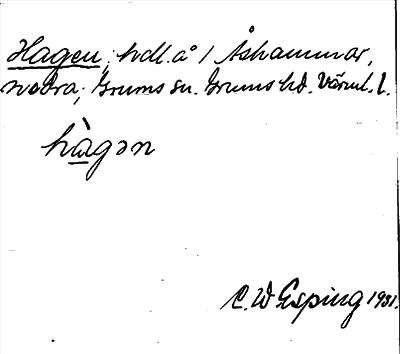 Hagen, hdl. å 1 Åshammar,
nedra, Grums sn. Grums hd. Värml. l.
hàgən
C. W Esping 1931.